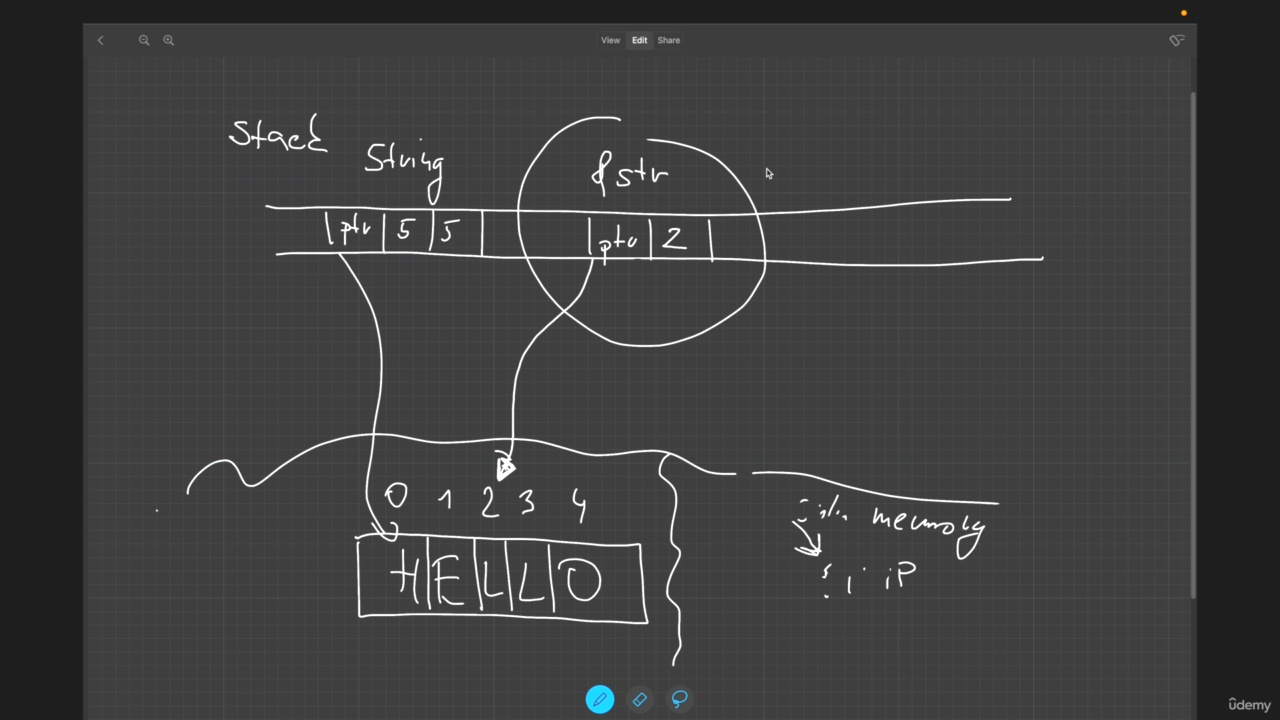 View Edit Share
Stack
String
&str
ptr 5 5
ptr 2
0 1 2 3 4
HELLO
memory
udemy